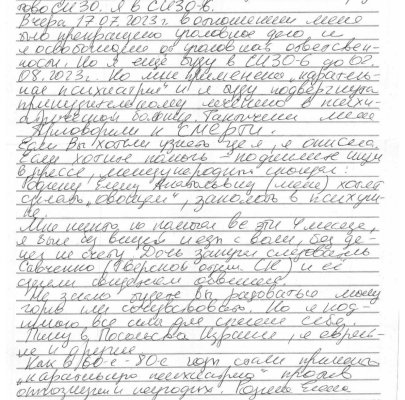 СИЗО. Я в СИЗО-6.
Вчера 17.07.2023г в отношении меня
было прекращено уголовное дело и
я освобождена от уголовной ответствен-
ности. Но я ещё буду в СИЗО-6 до 02.
08.2023г. Ко мне применена "каратель-
ная психиатрия" и я буду подвергнута
принудительному лечению в психи-
атрической больнице. Фактически меня
приговорили к СМЕРТИ.
Если Вы хотели узнать где я, я описала.
Если хотите помочь - поднимите шум
в прессе, международный скандал:
Родину Елену Анатольевну (меня) хотят
сделать "овощем", заколоть в психуш-
ке.
Мне никто не помогал все эти 4 месяца,
я была без вещей и еды с воли, без де-
нег на счету. Дочь запугал следователь
Савченко (Тверской СК) и её
сделали свидетелем обвинения.
Не знаю, будете Вы радоваться моему
горю или сочувствовать. Но я под-
нимаю все силы для спасения себя.
Пишу в Посольство Израиля, я еврей-
ка и другие.
Как в 60-е - 80-е годы стали применять
"карательную психиатрию" против
оппозиции и неугодных. Родина Елена